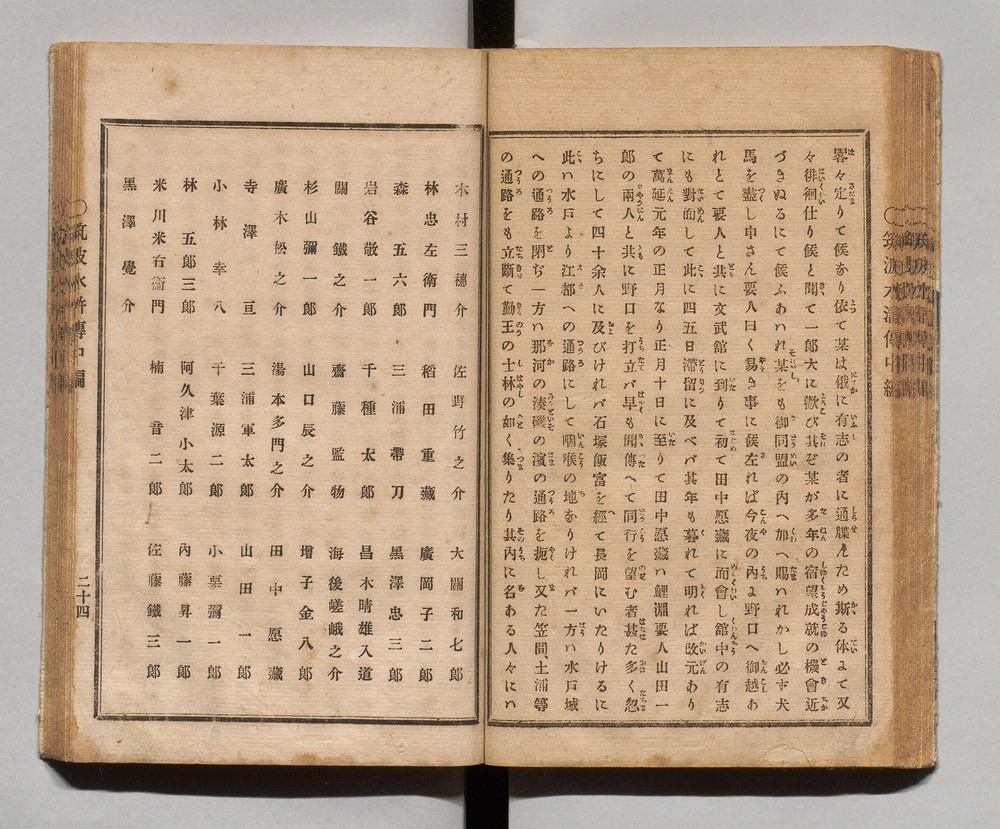 畧々定りて候なり依て某は俄に有志の者に通牒しため斯る体よて又
々徘徊仕り候と聞て一郎大に歡び其ぞ某が多年の宿望成就の機會近
づきぬるにて候ふあハれ某をも御同盟の內へ加へ賜ハれかし必ず犬
馬を盡し申さん要人曰く易き事に候左れば今夜の內よ野口へ御越あ
れとて要人と共に文武館に到りて初て田中愿藏に面會し館中の有志
にも對面して此に四五日滯留に及べバ其年も暮れて明れば改元あり
て萬延元年の正月なり正月十日に至りて田中愿藏ハ鯉淵要人山田一
郎の兩人と共に野口を打立バ早も聞傳へて同行を望む者甚た多く忽
ちにして四十余人に及びけれバ石塚飯富を經て長岡にいたりけるに
此ハ水戸より江都への通路にして咽喉の地なりけれバ一方ハ水戸城
への通路を閉ぢ一方ハ那河の湊磯の濱の通路を扼し又た笠間土浦等
の通路をも立斷て勤王の士林の如く集りたり其內に名ある人々にハ
木村三穗介　佐野竹之介　大關和七郎
林忠左衛門　稻田重藏　廣岡子二郎
森五六郎　三浦帶刀　黑澤忠三郎
岩谷敬一郎　千種太郎　昌木晴雄入道
關鐵之介　齋藤監物　海後嵯峨之介
杉山彌一郎　山口辰之介　增子金八郎
廣木松之介　湯本多門之介　田中愿藏
寺澤亘　三浦軍太郎　山田一郎
小林幸八　千葉源二郎　小栗彌一郎
林五郎三郎　阿久津小太郎　內藤昇一郎
米川米右衞門　楠音二郎　佐藤鐵三郎
黑澤覺介
筑波水滸傳中編
二十四